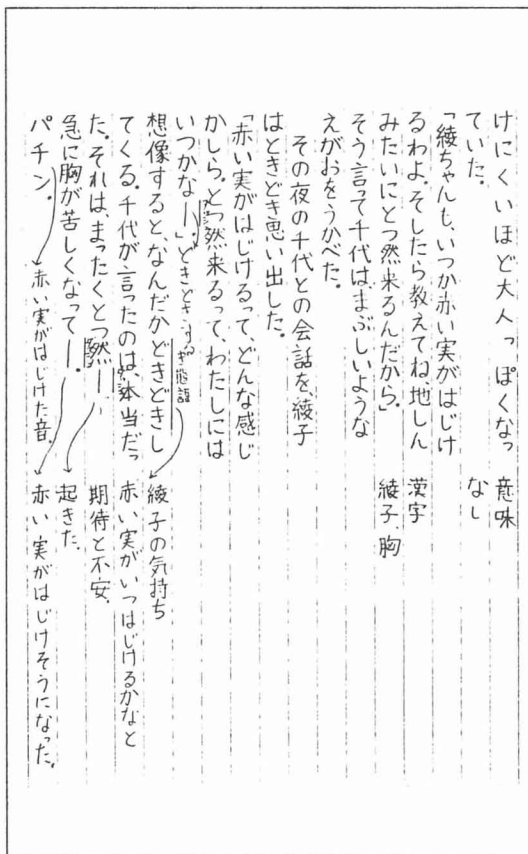 けにくいほど大人っぽくなっ
ていた。
「綾ちゃんも、いつか赤い実がはじけ
るわよ。そしたら教えてね、地しん
みたいにとつ然来るんだから。」
そう言って千代は、まぶしいような
えがおをうかべた。
その夜の千代との会話を、綾子
はときどき思い出した。
「赤い実がはじけるって、どんな感じ
かしら。とつ然来るって、わたしには
いつかな―。」どきどき
想像すると、なんだかどきどきし
てくる。千代が言ったのは、本当だっ
た。それは、まったくとつ然―。
急に胸が苦しくなって―。
パチン。
意味
なし
漢字
綾子、胸
綾子の気持ち
赤い実がいつはじけるかなと
期待と不安
起きた。
赤い実がはじけそうになった。
赤い実がはじけた音。